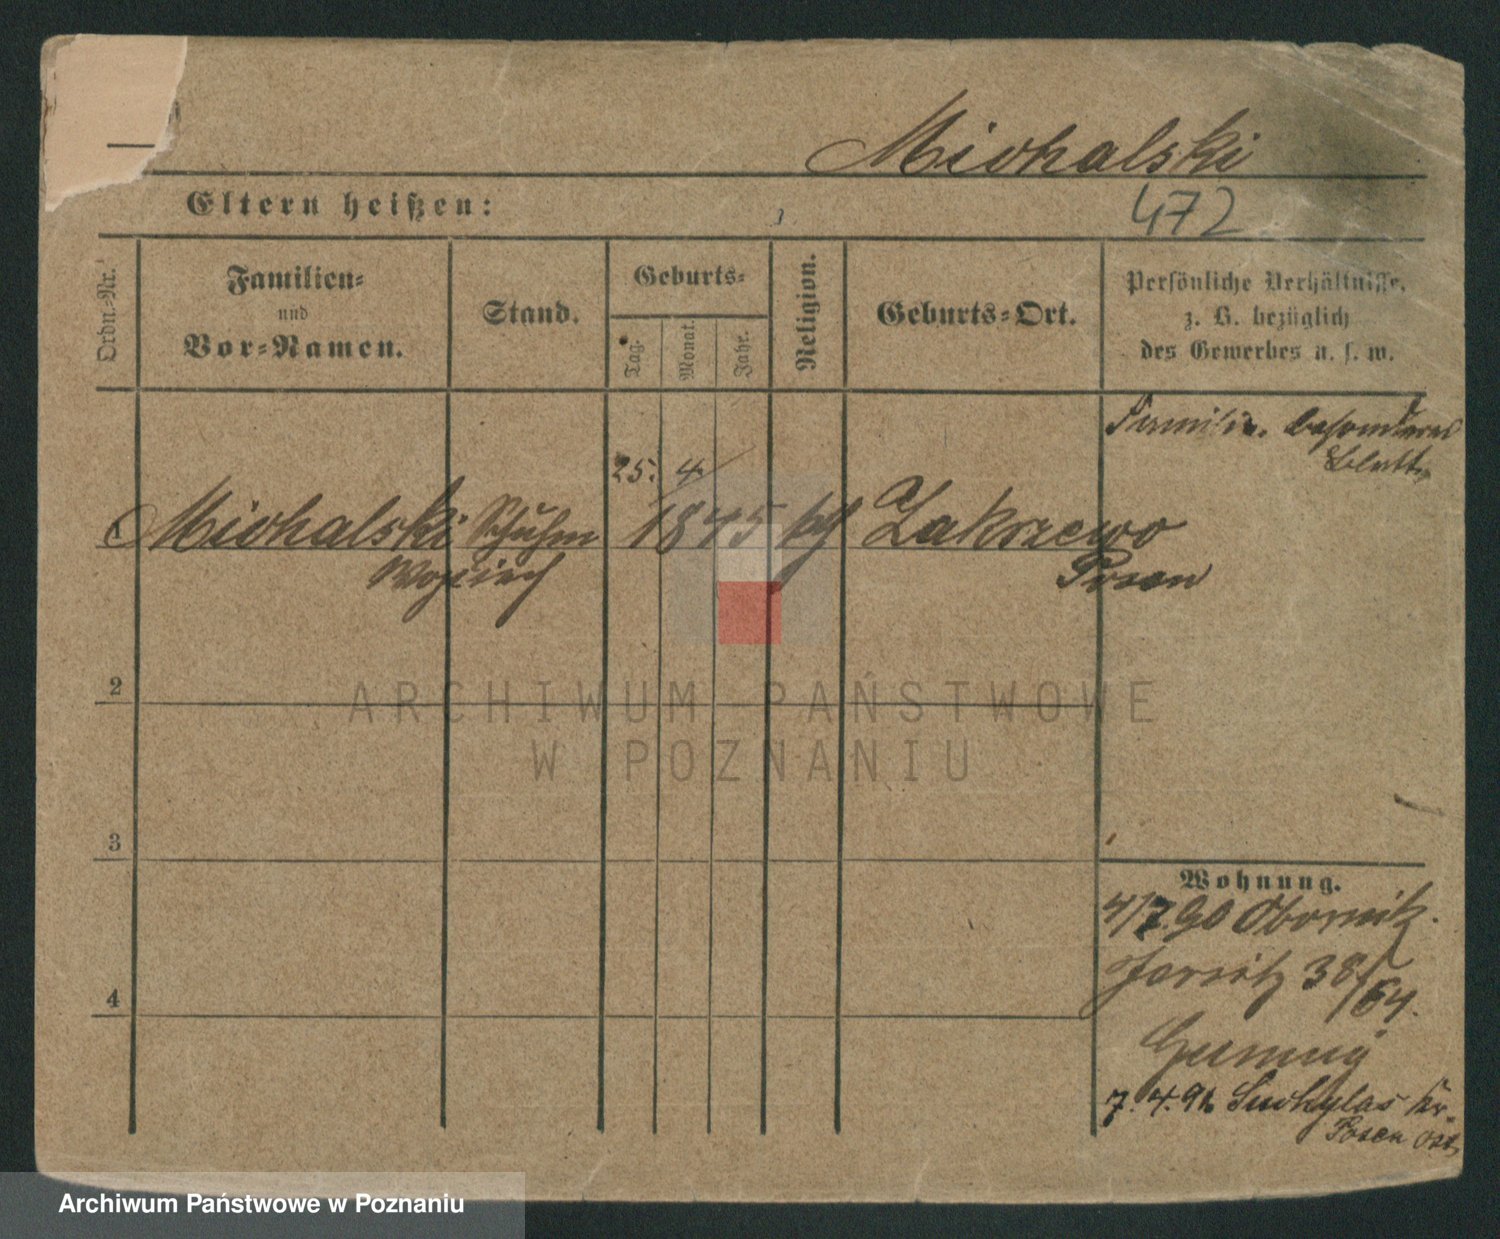 Michalski
472
Eltern heißen:
Ordn.-Nr.
Familien-
und
Vor-Namen.
Stand.
Geburts-
Tag.
Monat.
Jahr.
Religion.
Geburts-Ort.
Persönliche Verhältnisse,
z. B. bezüglich
des Gewerbes u. s. w.
Familie. besonderes
Blatt
25. 4.
1 Michalski Schuhm 1845 kth Zakrzewo
Woyciech Posen
2
3
4
Wohnung.
4/7.90 Obornik.
Jersitz 38/64.
7.4.91 Suchylas Kr.
Posen Ost.
ARCHIWUM PAŃSTWOWE
W POZNANIU
Archiwum Państwowe w Poznaniu